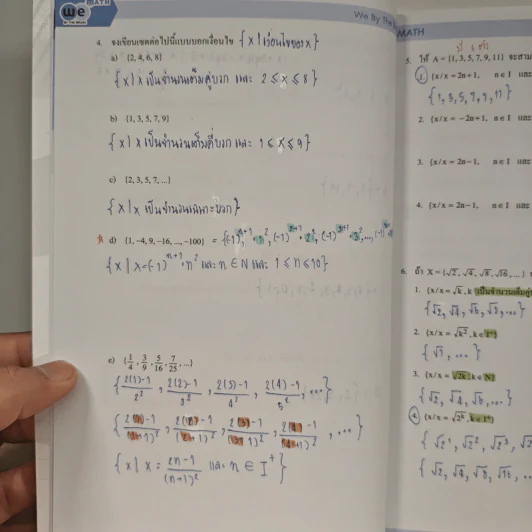 we MATH
BY THE BRAIN
We By The
4. จงเขียนเซตต่อไปนี้แบบบอกเงื่อนไข {x | เงื่อนไขของ x}
a) {2, 4, 6, 8}
{x | x เป็นจำนวนเต็มคู่บวก และ 2 ≤ x ≤ 8}
b) {1, 3, 5, 7, 9}
{x | x เป็นจำนวนเต็มคี่บวก และ 1 ≤ x ≤ 9}
c) {2, 3, 5, 7, ...}
{x | x เป็นจำนวนเฉพาะบวก}
d) {1, -4, 9, -16, ..., -100} = {(-1)¹⁺¹·1², (-1)²⁺¹·2², (-1)³⁺¹·3², ..., (-1)
{x | x = (-1)ⁿ⁺¹·n² และ n ∈ N และ 1 ≤ n ≤ 10}
e) {1/4, 3/9, 5/16, 7/25, ...}
{2(1)-1/2², 2(2)-1/3², 2(3)-1/4², 2(4)-1/5², ...}
{2(1)-1/(1+1)², 2(2)-1/(2+1)², 2(3)-1/(3+1)², 2(4)-1/(4+1)², ...}
{x | x = 2n-1/(n+1)² และ n ∈ I⁺}
MATH
5. ให้ A = {1, 3, 5, 7, 9, 11}
1. {x/x = 2n+1, n ∈ I และ
{1, 3, 5, 7, 9, 11}
2. {x/x = -2n+1, n ∈ I และ
3. {x/x = 2n-1, n ∈ I และ
4. {x/x = 2n-1, n ∈ I และ
6. ถ้า X = {√2, √4, √8, √16, ...}
1. {x/x = √k, k เป็นจำนวนเต็มคู่
{√2, √4, √6, √8, ...
2. {x/x = √k², k ∈ I⁺}
{√1, ...}
3. {x/x = √2k, k ∈ N}
{√2, √4, √6, ...}
4. {x/x = √2ᵏ, k ∈ I⁺}
{√2¹, √2², √2³, √2
{√2, √4, √8, √16, ..